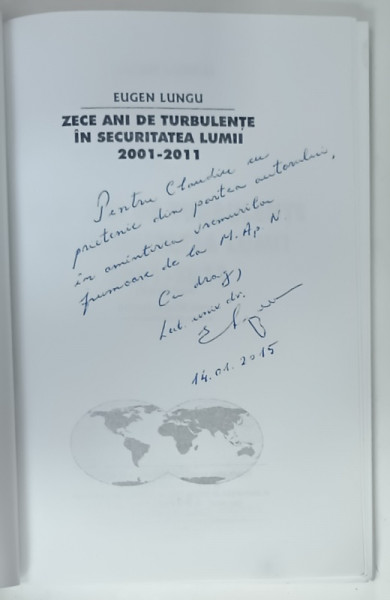 EUGEN LUNGU
ZECE ANI DE TURBULENȚE
ÎN SECURITATEA LUMII
2001-2011
Pentru Claudiu cu
prietenie din partea autorului,
în amintirea vremurilor
frumoase de la M.Ap N
Cu drag,
Lect. univ. dr.
14.01.2015